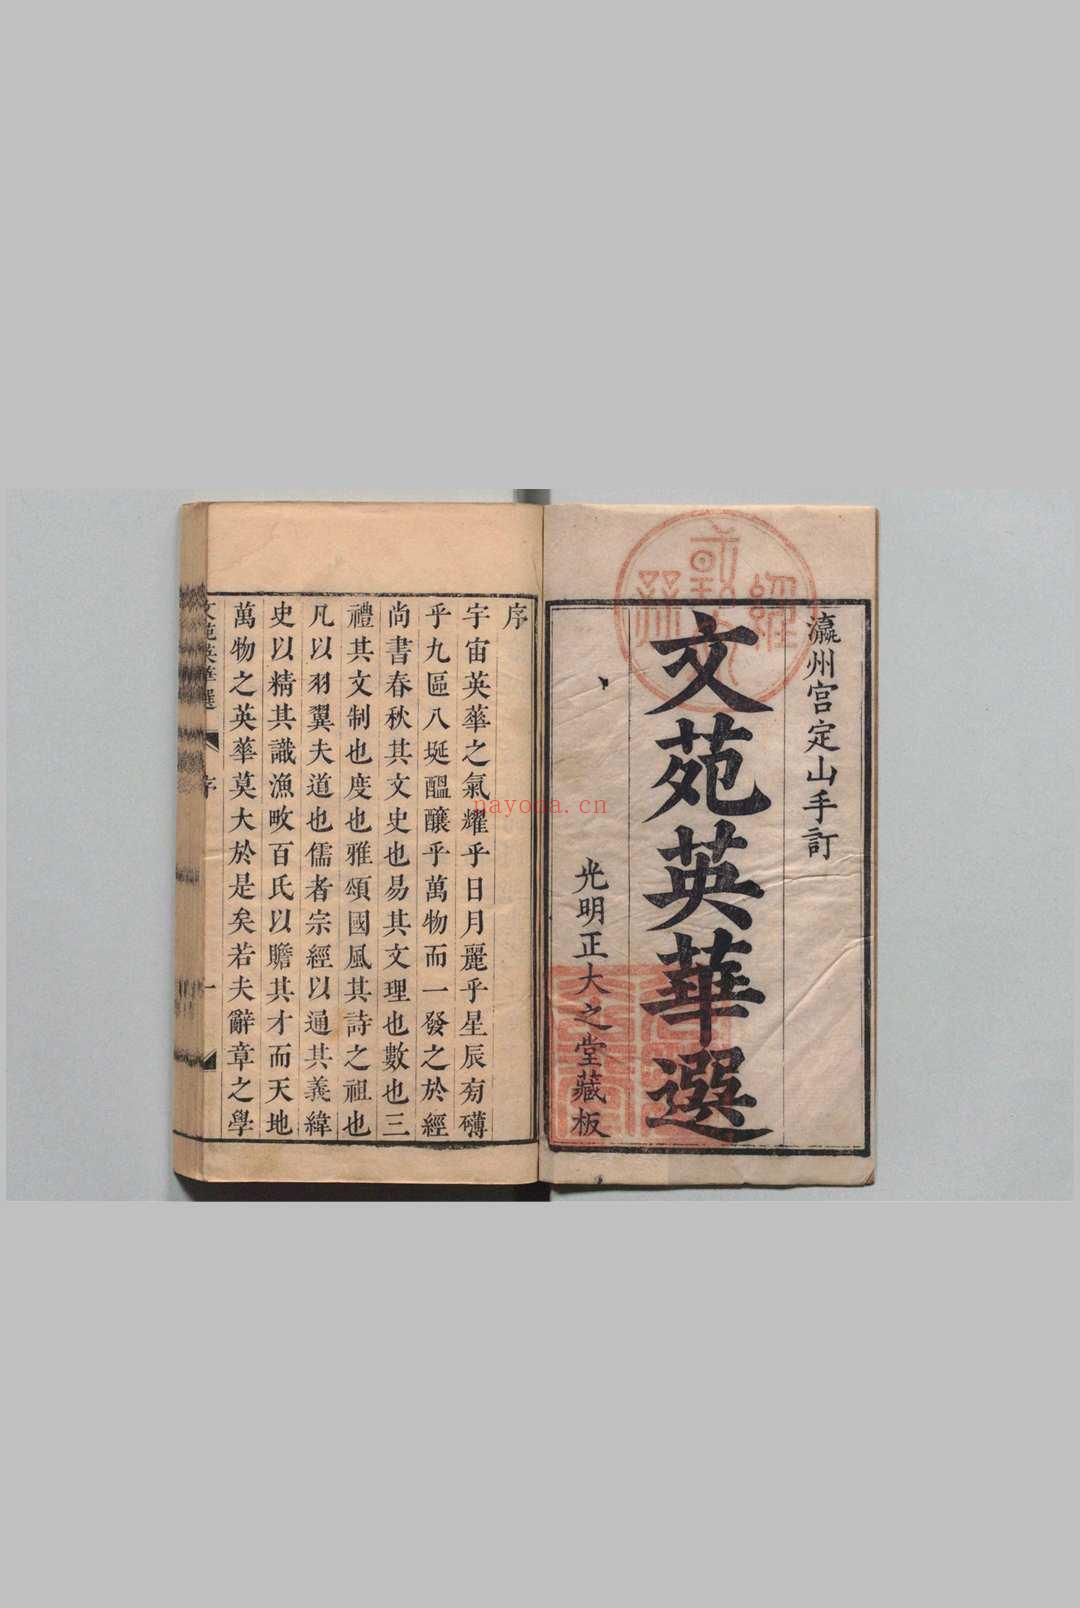 瀛州宫定山手訂
文苑英華選
光明正大之堂藏板
序
宇宙英華之氣耀乎日月麗乎星辰旁礴
乎九區八埏醞釀乎萬物而一發之於經
尚書春秋其文史也易其文理也數也三
禮其文制也度也雅頌國風其詩之祖也
凡以羽翼夫道也儒者宗經以通其義緯
史以精其識漁畋百氏以贍其才而天地
萬物之英華莫大於是矣若夫辭章之學
文苑英華選
序
一
nayona.cn